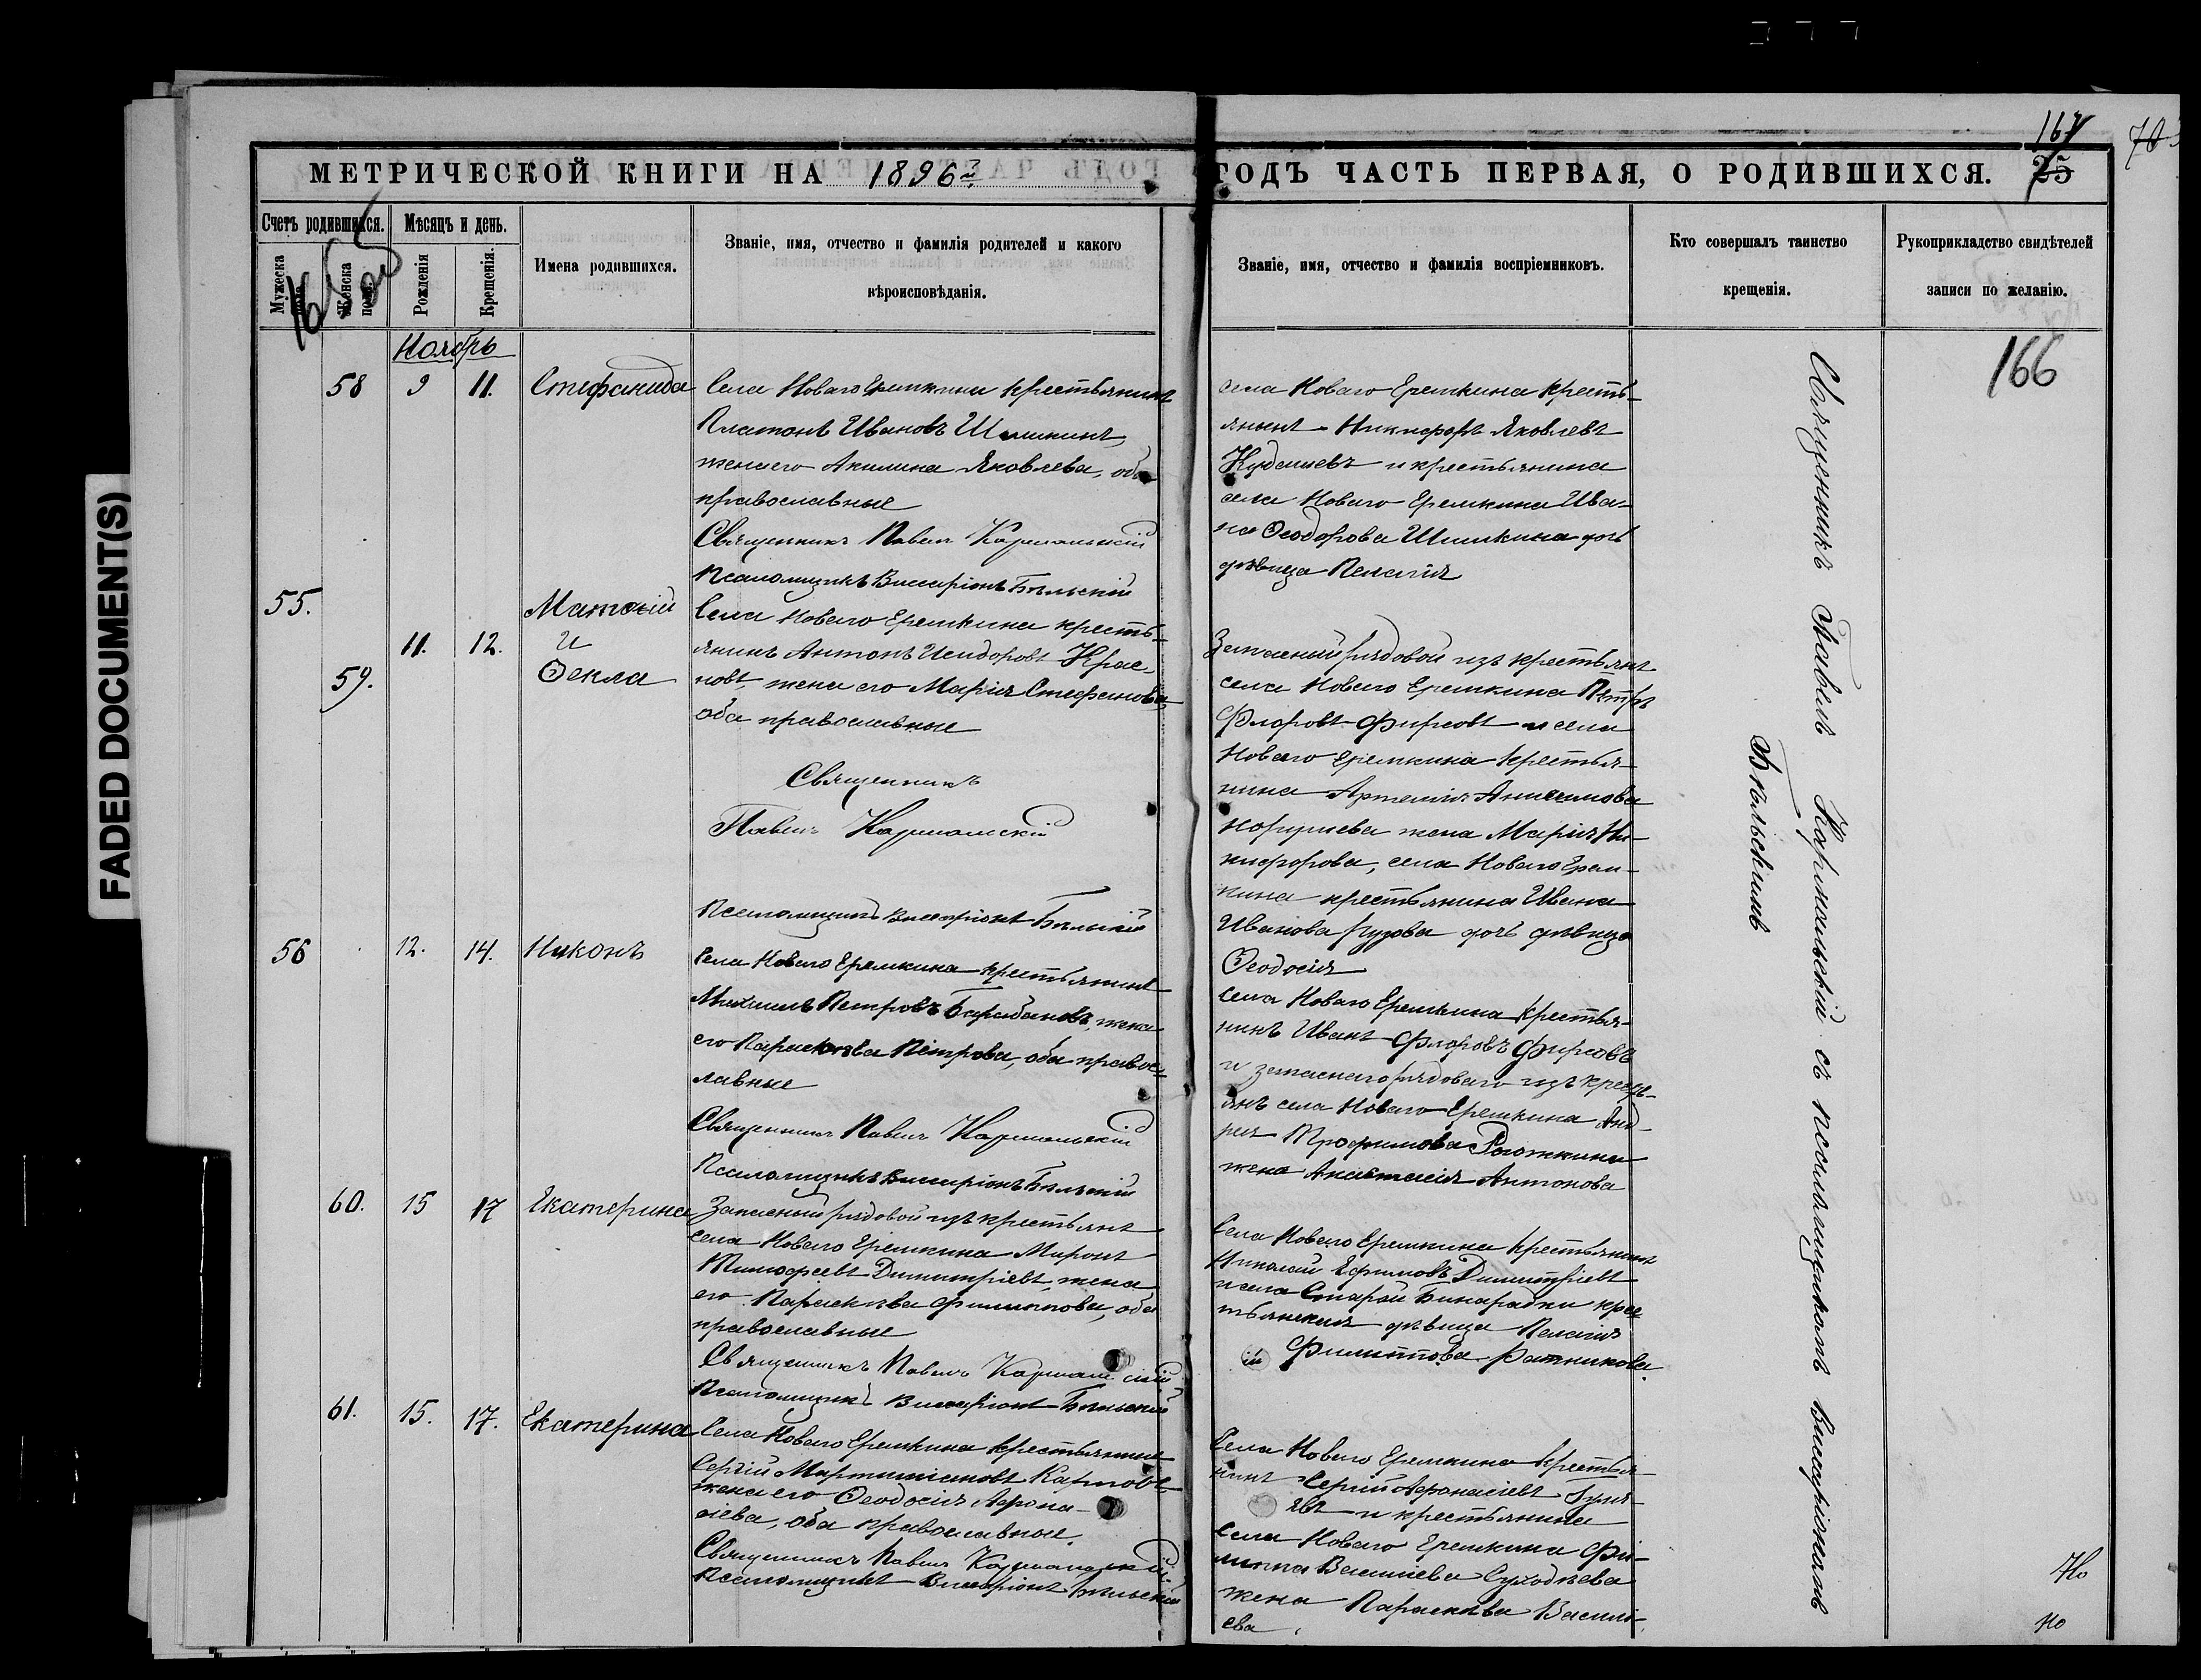 167
703
МЕТРИЧЕСКОЙ КНИГИ НА 1896 г. ГОДЪ ЧАСТЬ ПЕРВАЯ, О РОДИВШИХСЯ. 25
Счетъ родившихся.
Мужеска пола.
Женска пола.
Мѣсяцъ и день.
Рожденія
Крещенія.
Имена родившихся.
Званіе, имя, отчество и фамилія родителей и какого
вѣроисповѣданія.
Званіе, имя, отчество и фамилія воспріемниковъ.
Кто совершалъ таинство
крещенія.
Рукоприкладство свидѣтелей
записи по желанію.
166
Ноябрь
58 9 11. Стефанида
Села Новаго Еремкина крестьянинъ
Платонъ Ивановъ Шишкинъ,
жена его Акилина Яковлева, оба
православные
Священникъ Павелъ Кармальскій
Псаломщикъ Виссаріонъ Бѣльскій
села Новаго Еремкина кресть-
янинъ Никифоръ Яковлевъ
Кудашевъ и крестьянина
села Новаго Еремкина Ива-
на Ѳеодорова Шишкина дочь
дѣвица Пелагія
55. 11. 12. Матѳій
и
59. Ѳекла
Села Новаго Еремкина кресть-
янинъ Антонъ Исидоровъ Крас-
новъ, жена его Марія Стефанова,
оба православные
Священникъ
Павелъ Кармальскій
Псаломщикъ Виссаріонъ Бѣльскій
Запасный рядовой изъ крестьянъ
села Новаго Еремкина Петръ
Флоровъ Фирсовъ и села
Новаго Еремкина крестья-
нина Артемія Анисимова
жена Марія Ни-
кифорова, села Новаго Ерем-
кина крестьянина Ивана
Иванова дочь дѣвица
Ѳеодосія
56 12. 14. Никонъ
Села Новаго Еремкина крестьянинъ
Михаилъ Петровъ Барабановъ, жена
его Параскева Петрова, оба правос-
лавные
Священникъ Павелъ Кармальскій
Псаломщикъ Виссаріонъ Бѣльскій
Села Новаго Еремкина крестья-
нинъ Иванъ Флоровъ Фирсовъ
и запаснаго рядоваго изъ кресть-
янъ села Новаго Еремкина Анд-
рея Трофимова
жена Анастасія Антонова
60. 15 17 Екатерина
Запасный рядовой изъ крестьянъ
села Новаго Еремкина Миронъ
Тимофеевъ Димитріевъ, жена
его Параскева Филиппова, оба
православные
Священникъ Павелъ Кармальскій
Псаломщикъ Виссаріонъ Бѣльскій
Села Новаго Еремкина крестьянинъ
Николай Ефимовъ Димитріевъ
и села Старой Бинарадки крес-
тьянская дѣвица Пелагія
Филиппова Ратникова.
61. 15. 17. Екатерина
Села Новаго Еремкина крестьянинъ
Сергій Мартиніановъ Карповъ
жена его Ѳеодосія Афона-
сіева, оба православные.
Священникъ Павелъ Кармальскій
Псаломщикъ Виссаріонъ Бѣльскій
Села Новаго Еремкина крестья-
нинъ Сергій Афанасіевъ
и крестьянина
Села Новаго Еремкина Фи-
липпа Василіева Суходѣева
жена Параскева Василі-
ева.
Священникъ Павелъ Кармальскій съ псаломщикомъ Виссаріономъ
Бѣльскимъ
FADED DOCUMENT(S)